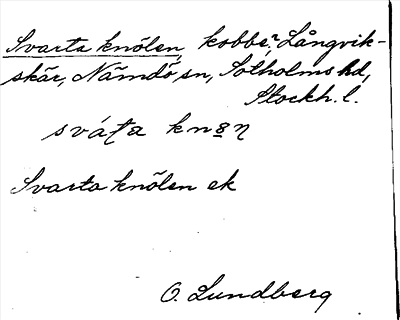 Svarta knölen, kobbe, Långvik-
skär, Nämdö sn, Sotholms hd,
Stockh. l.
Svarta knölen ek
O. Lundberg